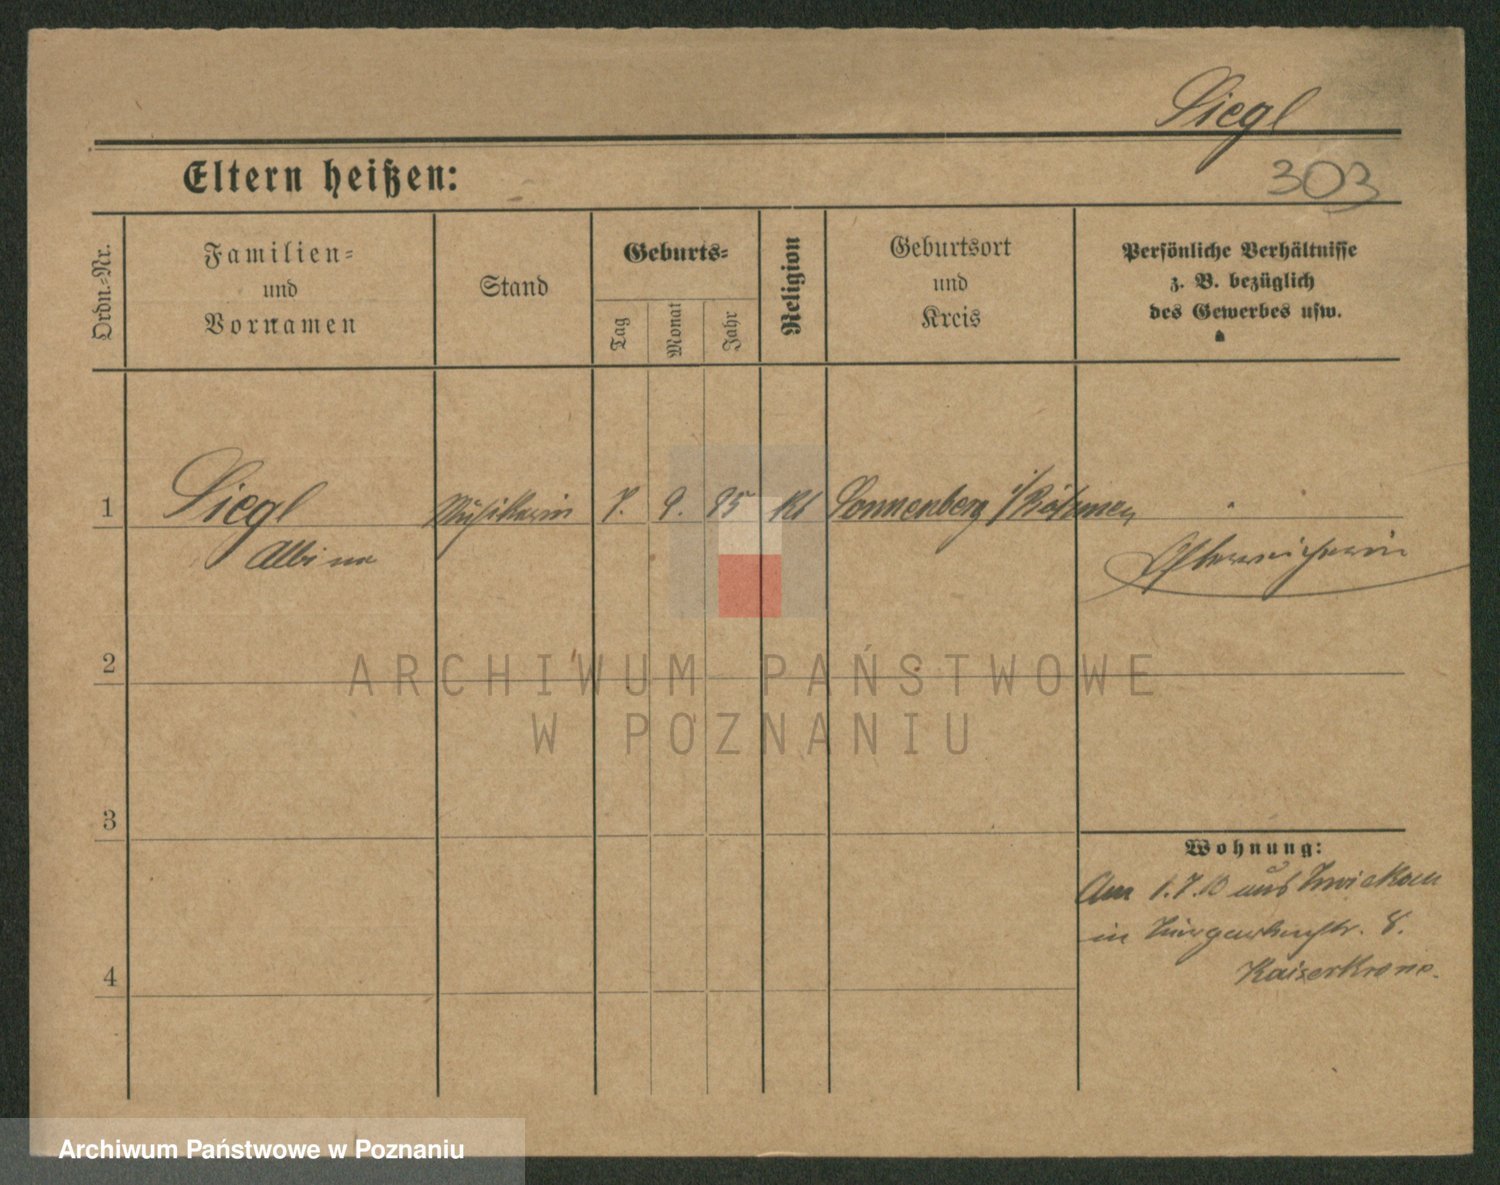 Siegl
303
Eltern heißen:
Ordn.-Nr.
Familien-
und
Vornamen
Stand
Geburts-
Tag
Monat
Jahr
Religion
Geburtsort
und
Kreis
Persönliche Verhältnisse
z. B. bezüglich
des Gewerbes usw.
1 Siegl Musikerin 7. 9. 95 kt Sonnenberg i/Böhmen
Albine
Österreicherin
2
3
4
Wohnung:
Am 1.7.13 aus Zwickau
in 8.
Kaiserkrone.
ARCHIWUM PAŃSTWOWE
W POZNANIU
Archiwum Państwowe w Poznaniu